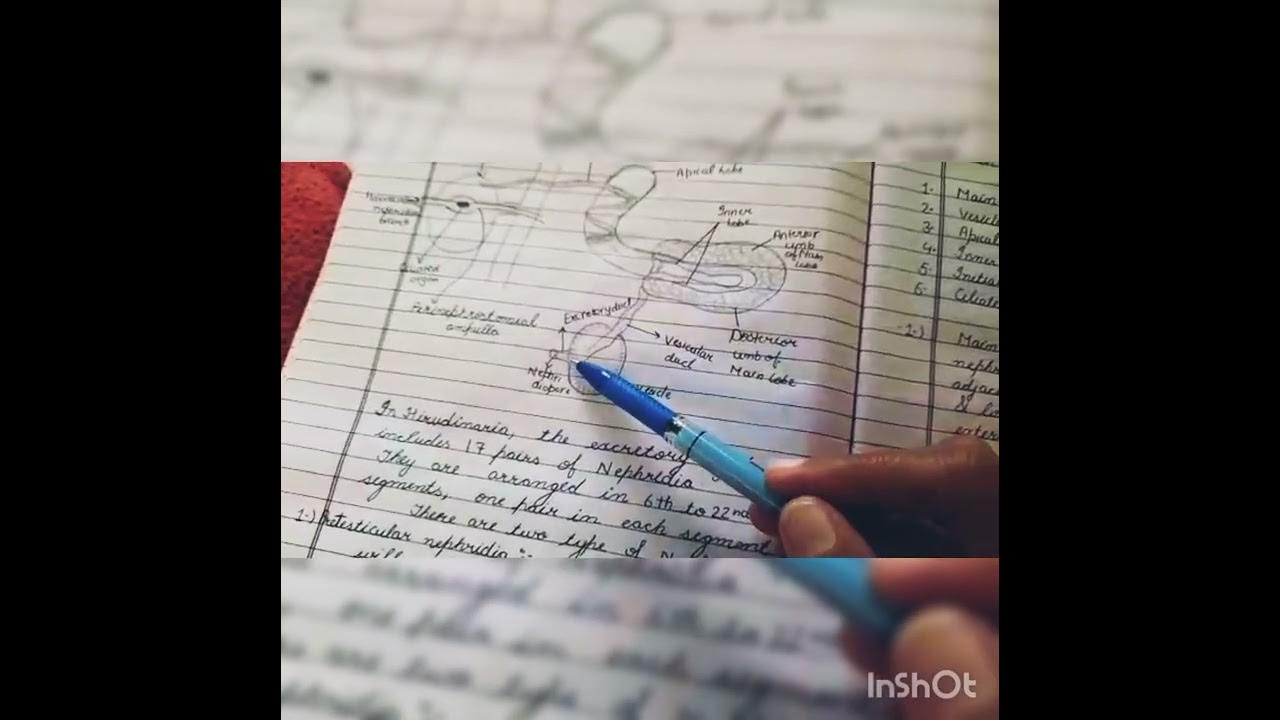 Apical Lobe
Inner
lobe
Anterior
limb
of Main
lobe
organ
Perinephrostomial
ampulla
Excretory duct
Vesicular
duct
Posterior
limb of
Main lobe
Nephri
diopore
In Hirudinaria, the excretory
includes 17 pairs of Nephridia
They are arranged in 6th to 22nd
segments, one pair in each segment
There are two type of
1-) Pretesticular nephridia :-
will
1. Main
2. Vesicle
3. Apical
4. Inner
5. Initial
6. Ciliate
-1-) Main
nephr
adjac
& lo
exter
InShOt